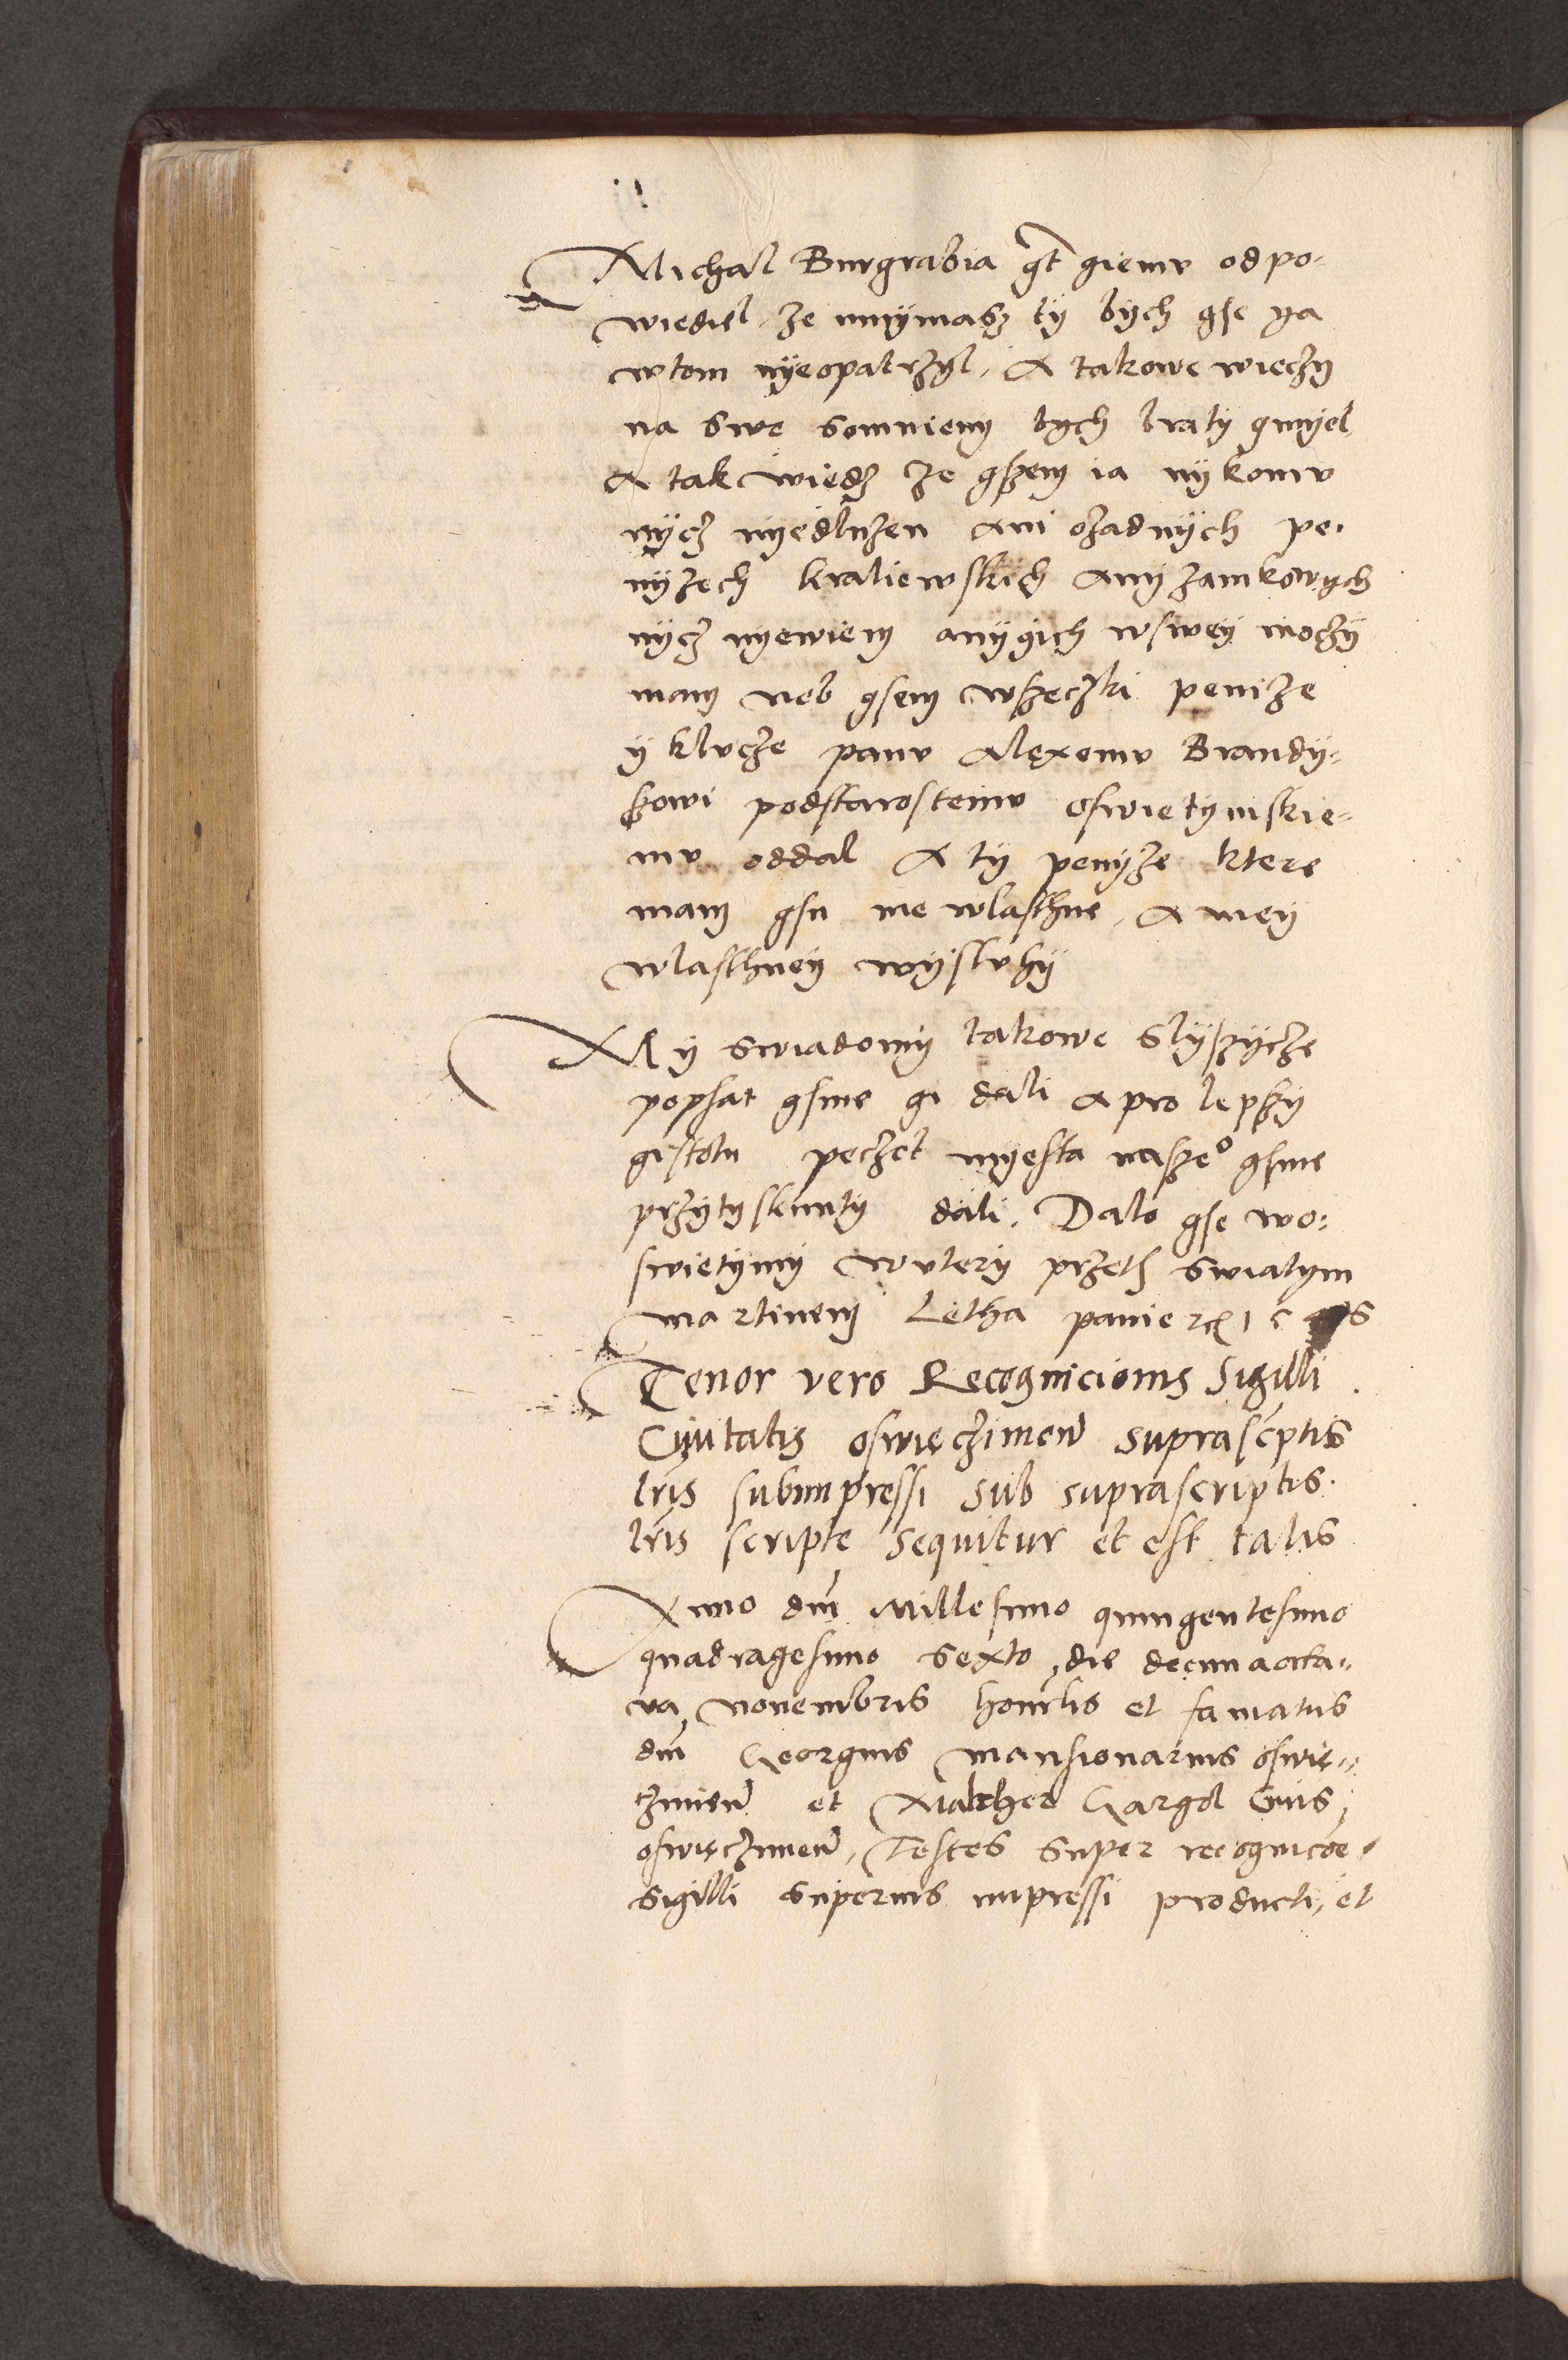 Michal Burgrabia gt giemv odpo-
wiedıel, że mnymasz ty bych gse ya
wtom nyeopatrzyl, A takowe wieczy
na swe somnieny bych braty gmyel,
A tak wiedz że gszem ia nykomv
nycz nyedlużen Ani ożadnych pe-
nyżech kraliewskich Any zamkowych
nycz nyewiem anygich wswey moczy
mam neb gsem wszeczki peniże
y klvcze panv Alexemv Brandy-
sowi podstarostemv oswietymskie-
mv oddal A ty penyże ktere
mam gsu me wlasthne, A mey
wlasthney wyslvhy
My swiadomy takowe slyszycze
popsat gsme gi dali A pro lepszy
gistotu peczet myesta nasze° gsme
przytysknuty dali. Dalo gse wo-
swietymy wvtery przed swiatym
martinem Letha panie
Tenor vero Recognicionis Sigilli
Ciuitatis oswięczimen suprascptis
lris subimpressi sub suprascriptis
lris scripte sequitur et est talis
Anno dni Millesimo quingentesimo
quadragesimo sexto, die decimaocta-
va, Novembris honrlis et famatus
dni Georgius mansionarius oswie-
czimen et Malcher Gargol Ciuis
oswięczimen, Testes super recognicoe
sigilli superius impressi producti, et